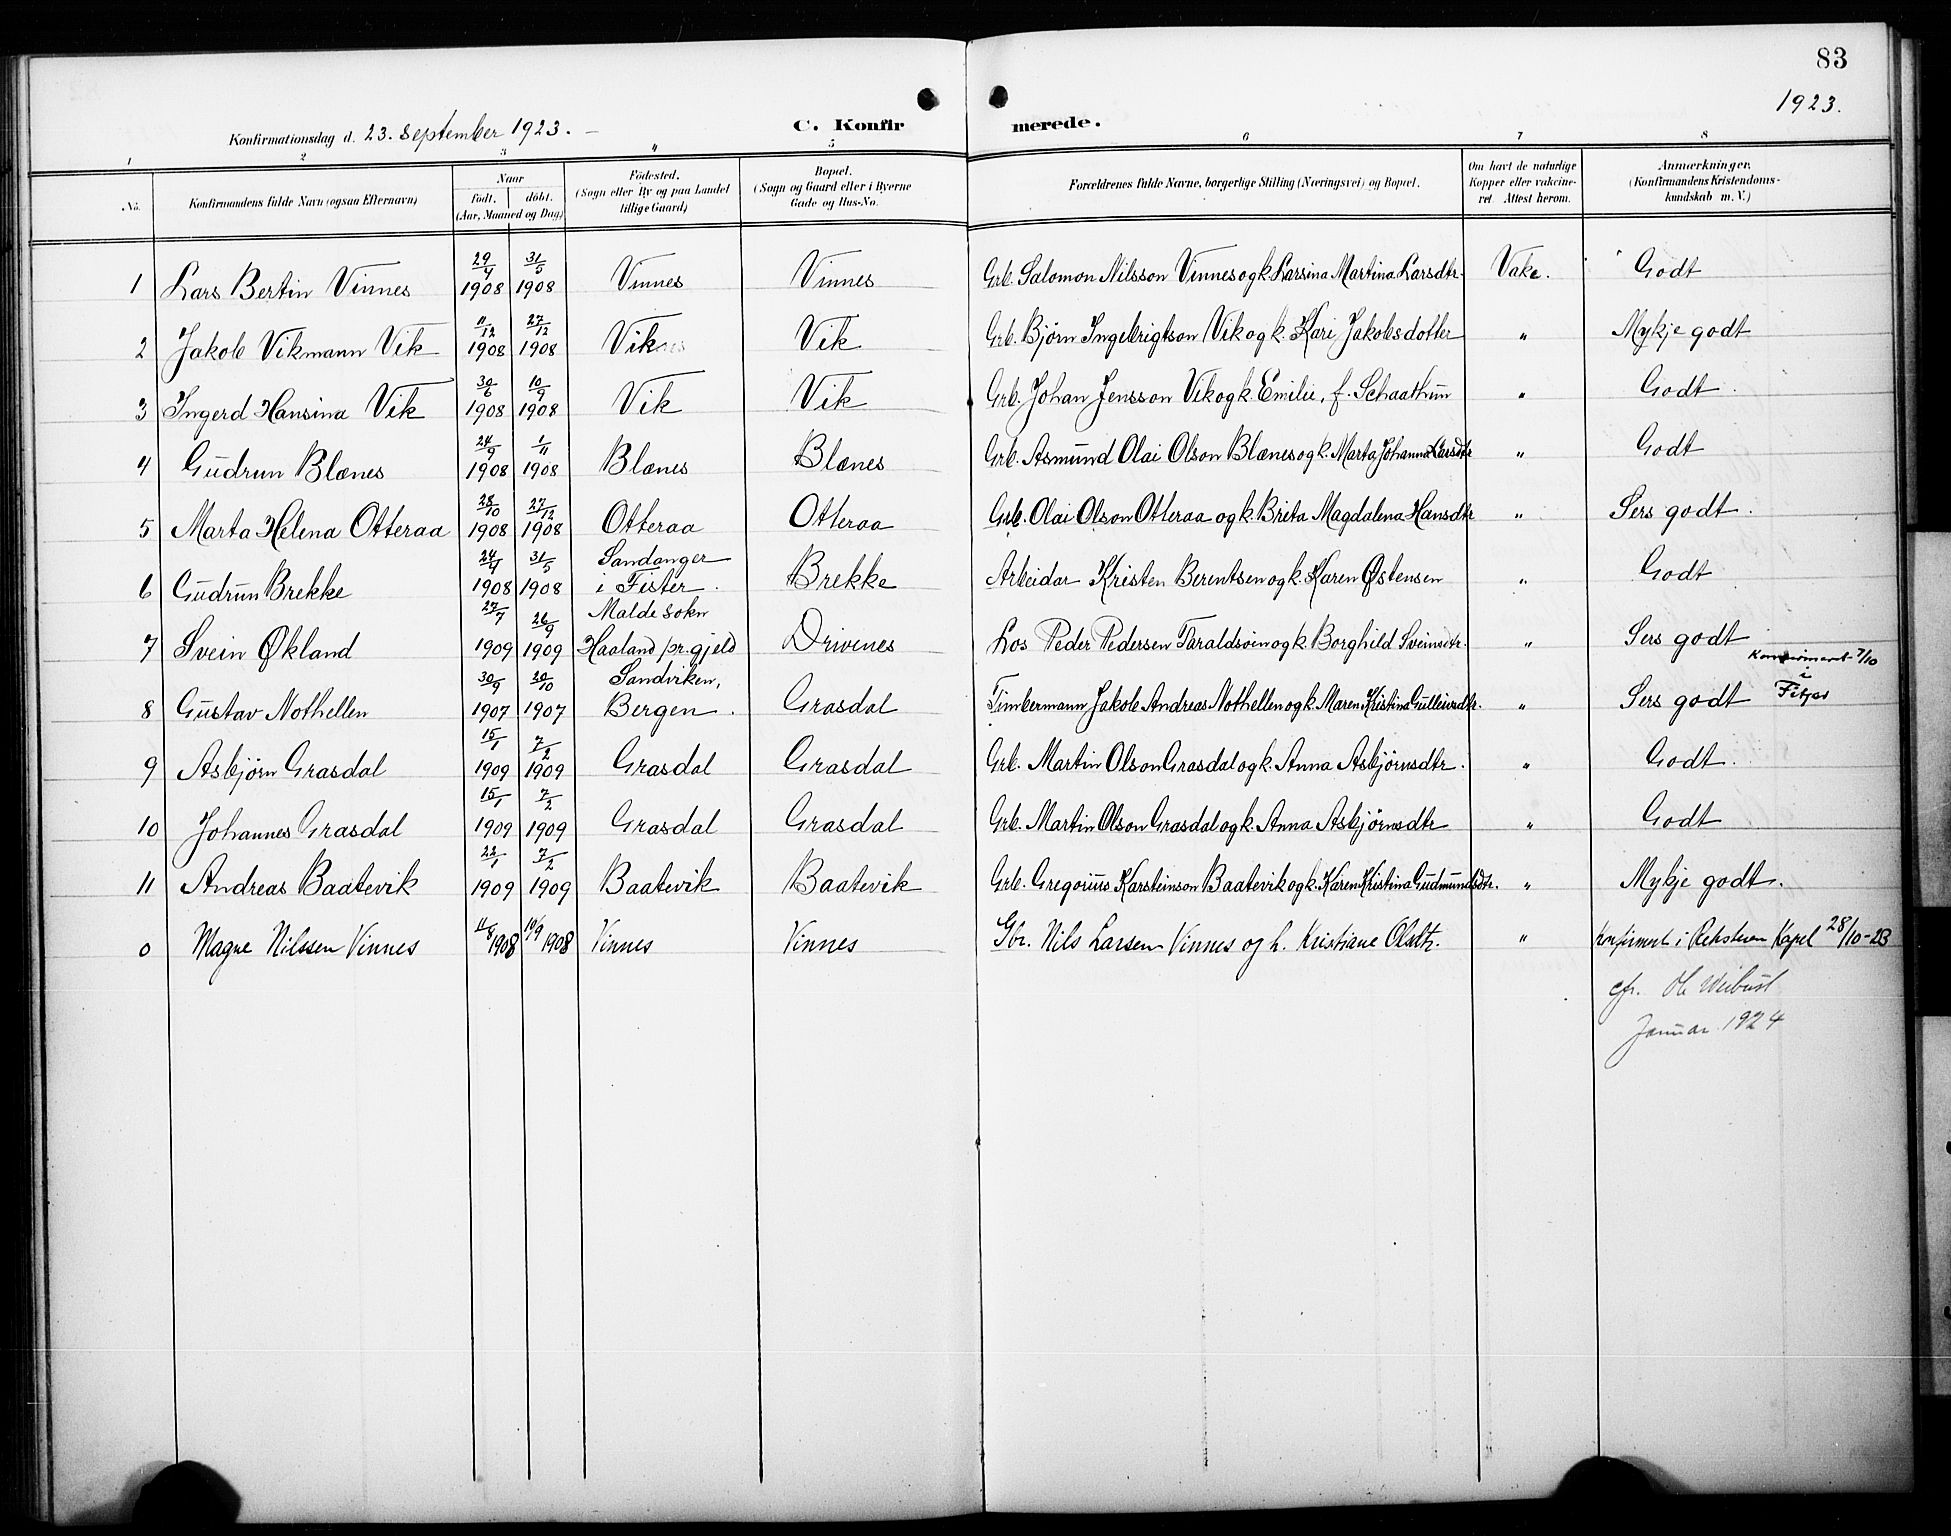 83
1923.
Konfirmationsdag d. 23. September 1923. C. Konfirmerede.
1 2 3 4 5 6 7 8
No. Konfirmandens fulde Navn (ogsaa Efternavn) Naar født. døbt. (Aar, Maaned og Dag) Fødested. (Sogn eller By og paa Landet tillige Gaard) Bopæl. (Sogn og Gaard eller i Byerne Gade og Hus-No. Forældrenes fulde Navne, borgerlige Stilling (Næringsvei) og Bopæl. Om havt de naturlige Kopper eller vakcineret. Attest herom. Anmærkninger. (Konfirmandens Kristendomskundskab m. V.)
1 Lars Bertin Vinnes 29/4 1908 31/5 1908 Vinnes Vinnes Grb. Salomon Nilsson Vinnes og k. Larsina Martina Larsdtr. Vakc. Godt
2 Jakob Vikmann Vik 11/12 1908 27/12 1908 Vik Vik Grb. Bjørn Ingebrigtson Vik og k. Kari Jakobsdotter " Mykje godt
3 Ingerd Hansina Vik 30/6 1908 10/9 1908 Vik Vik Grb. Johan Jensson Vik og k. Emilie, f. Schaathun " Godt.
4 Gudrun Blænes 24/9 1908 1/11 1908 Blænes Blænes Grb. Asmund Olai Olson Blænes og k. Marta Johanna Larsdtr " Godt
5 Marta Helena Otteraa 28/10 1908 27/12 1908 Otteraa Otteraa Grb. Olai Olson Otteraa og k. Brita Magdalena Hansdtr " Sers godt.
6 Gudrun Brekke 24/4 1908 31/5 1908 Sandanger i Fister. Brekke Arbeidar Kristen Berentsen og k. Karen Østensen " Godt
7 Svein Økland 27/7 1909 26/9 1909 Malde sokn Haaland pr.gjeld Drivenes Los Peder Pedersen Taraldsøin og k. Borghild Sveinsdtr. " Sers godt
8 Gustav Nothellen 30/9 1907 20/10 1907 Sandviken, Bergen. Grasdal Timbermann Jakob Andreas Nothellen og k. Maren Kristina Gulleivsdtr. " Sers godt Konfirmert 7/10 i Fitjar
9 Asbjørn Grasdal 15/1 1909 7/2 1909 Grasdal Grasdal Grb. Martin Olson Grasdal og k. Anna Asbjørnsdtr. " Godt.
10 Johannes Grasdal 15/1 1909 7/2 1909 Grasdal Grasdal Grb. Martin Olson Grasdal og k. Anna Asbjørnsdtr " Godt
11 Andreas Baatevik 22/1 1909 7/2 1909 Baatevik Baatevik Grb. Gregorius Karsteinson Baatevik og k. Karen Kristina Gudmundsdtr. " Mykje godt.
0 Magne Nilssen Vinnes 11/8 1908 19/9 1908 Vinnes Vinnes Gbr. Nils Larsen Vinnes og h. Kristiane Olsdtr. " konfirmert i Reksteren Kapel 28/10-23
cfr. Ole Weibust
Januar. 1924